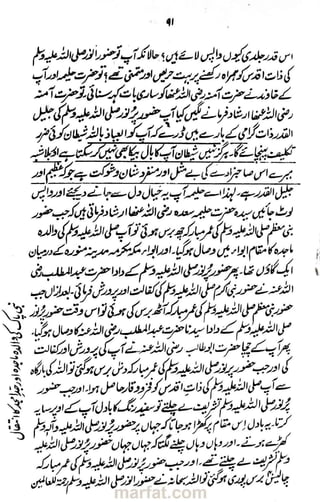 ۹۱
اس قدر جلدی کیوں واپس لائے ہیں؟ حالانکہ آپ تو حضور انور صلی اللہ علیہ وسلم
کی ذات اقدس کو ہمراہ رکھنے پر بہت حریص اور متمنی تھے؟ تو حضرت حلیمہ اور آپ
کے خاوند نے حضرت آمنہ رضی اللہ عنہا کو ساری بات کہہ سنائی، تو حضرت آمنہ
رضی اللہ عنہا ارشاد فرمانے لگیں کیا آپ حضور پرنور صلی اللہ علیہ وسلم کی جلیل
القدر ذات گرامی کے بارے میں ڈر رہے کہ آپ کو العیاذ باللہ شیطان کوئی ضرر
تکلیف پہنچائے گا۔ ہرگز نہیں شیطان آپ کا بال بیکا بھی نہیں کر سکتا ہے اور بلاشبہ
میرے اس صاحبزادے کی بے مثل اور منفرد شان و شوکت ہے جو کہ عظیم اور
جلیل القدر ہے، لہذا اے حلیمہ آپ یہ خیال دل سے جانے دیجئے اور واپس
لوٹ جائیں سیدہ حضرت حلیمہ سعدیہ رضی اللہ عنہا ارشاد فرماتی ہیں کہ جب حضور
نبی معظم صلی اللہ علیہ وسلم کی عمر مبارکہ چھ برس ہوئی تو آپ صلی اللہ علیہ وسلم کی والدہ
ماجدہ کا مقام ابواء میں وصال ہو گیا۔ اور ابواء مکہ مکرمہ مدینہ منورہ کے درمیان
ایک گاؤں تھا۔ پھر حضور پرنور صلی اللہ علیہ وسلم کے دادا حضرت عبدالمطلب رضی
اللہ عنہ نے حضور نبی اکرم صلی اللہ علیہ وسلم کی کفالت اور پرورش فرمائی۔ بعد ازاں جب
حضور نبی معظم صلی اللہ علیہ وسلم کی عمر مبارکہ آٹھ برس کی ہوئی تو اس وقت حضور پرنور
صلی اللہ علیہ وسلم کے دادا سیدنا حضرت عبدالمطلب رضی اللہ عنہ کا وصال ہو گیا۔
پھر آپ کے چچا حضرت ابوطالب رضی اللہ عنہ نے آپ کی پرورش اور کفالت
کی اور جب حضور پرنور صلی اللہ علیہ وسلم کی عمر مبارکہ دس برس ہو گئی تو اللہ کی بارگاہ
سے آپ صلی اللہ علیہ وسلم کی ذات اقدس کو فخر و وقار حاصل ہوا۔ اور جب حضور
پرنور صلی اللہ علیہ وسلم تشریف لے چلتے تو سفید رنگ کا بادل آپ کے اوپر سایہ
کرتا۔ یہ بادل اس مقام پر کھڑا ہو جاتا کہ جہاں پر حضور پرنور صلی اللہ علیہ وآلہ وسلم
کھڑے ہوتے۔ اور وہاں وہاں چلنے لگتا کہ جہاں جہاں حضور پرنور صلی اللہ علیہ
وسلم تشریف لے چلتے تھے۔ اور جب حضور پرنور صلی اللہ علیہ وسلم کی عمر مبارکہ
چالیس برس پوری ہو گئی تو اللہ سبحانہ نے حضور پرنور صلی اللہ علیہ وسلم رحمۃ للعالمین
marfat.com